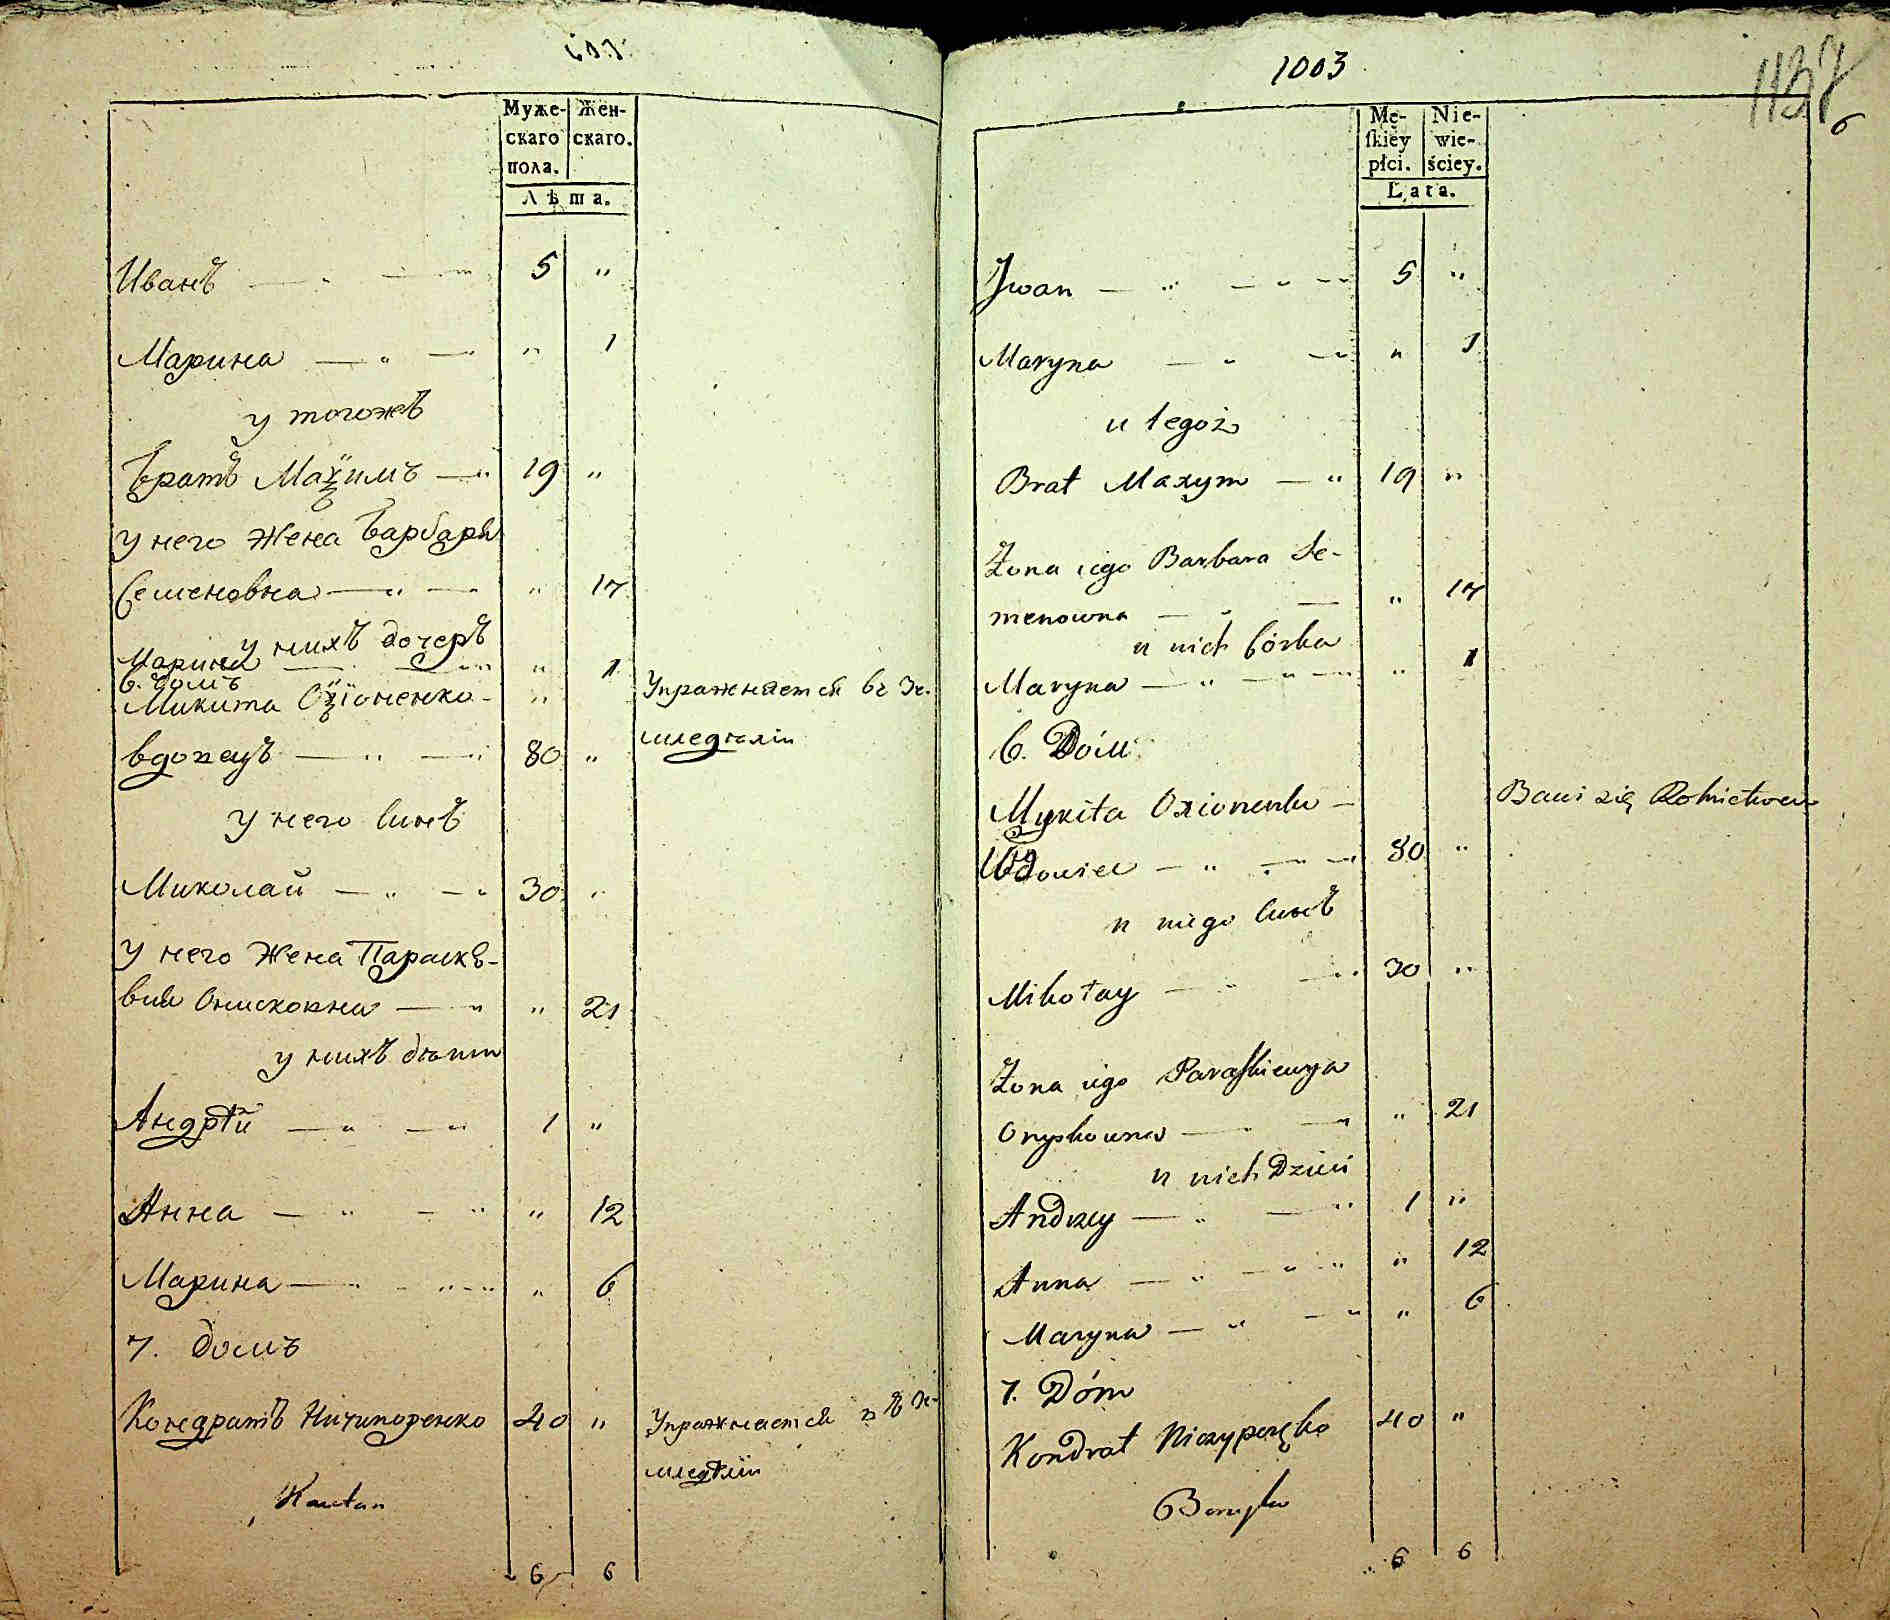 Муже-
скаго
пола.
Жен-
скаго.
Лѣта.
Иванъ 5 "
Марина " 1
у тогожъ
братъ Маѯимъ 19 "
у него Жена Барбара
Семеновна " 17
у нихъ дочеръ
Марина " 1
6. домъ
Микита Оѯіоненко
Упражняется въ Зе-
мледѣліи
вдовецъ 80 "
у него Синъ
Миколай 30 "
у него Жена Параскѣ-
вия Онисковна " 21
у нихъ дѣти
Андрѣй 1 "
Анна " 12
Марина " 6
7. домъ
Кондратъ Ничипоренко 40 "
Упражняется въ Зе-
мледѣліи
6 6
1003
1137
6
Mę-
ſkiey
płci.
Nie-
wie-
ściey.
Lata.
Jwan 5 "
Maryna " 1
u tegoż
Brat Maxym 19 "
Żona iego Barbara Se-
menowna " 17
u nich Córka
Maryna " 1
6. Dóm
Mykita Oxionenko
Bawi się Rolnictwem
Wdowiec 80 "
u niego Синъ
Mikołay 30 "
Żona iego Paraſkiewya
Onyskowna " 21
u nich Dzieci
Andrzey 1 "
Anna " 12
Maryna " 6
7. Dóm
Kondrat Niczyporęko 40 "
6 6